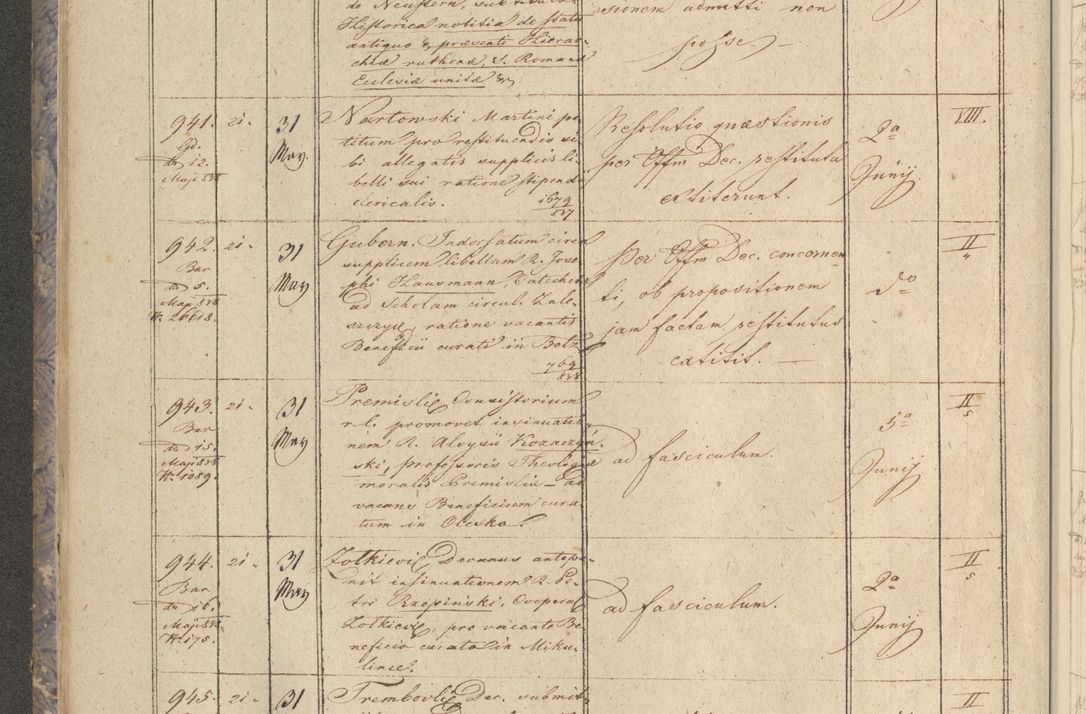 Historica notitia de statu
antiquo & praesenti Hierar-
chiae ruthenae, S. Romanae
Ecclesiae unitae
sionem admitti non
posse. –
941. 21. 31 May.
dto 12.
Maji 838
Nartowski Martini pe-
titum pro restituendis si-
bi allegatis supplicis li-
belli sui ratione stipendii
clericalis. 1679/837
Resolutio quaestionis
per Offm Dec. restituta
extiterunt.
2a
Junij.
VIII.
942. 21. 31 May
Bar
dto 5.
Maji 838
N. 26618.
Gubern. Indorsatum circa
supplicem libellum R. Jose-
phi Hausmann, Catechetae
ad Scholam circul. Zale-
szczyk, ratione vacantis
Beneficii curati in Betz
769/838
Per Offm Dec. concernen-
ti, ob propositionem
jam factam restitutus
extitit. —
dto
II/4
943. 21. 31 May
Bar
dto 15.
Maji 838
N. 1089.
Premislie Consistorium
r. l. promovet insinuatio-
nem R. Aloysii Kozaczyń-
ski, professoris Theologiae
moralis Premisliae – ad
vacans Beneficium cura-
tum in Olesko.
ad fasciculum.
5a
Junij
II/5
944. 21. 31 May
Bar
dto 16.
Maji 838
N. 175.
Zolkievie Decanus antepo-
nit insinuationem R. Pe-
tri Rzepiński, Cooperat.
Zolkievie, pro vacante Be-
neficio curato in Miku-
lince.
ad fasciculum.
2a
Junij
II/5
945. 21. 31
Trembovlie Dec. submit-
II